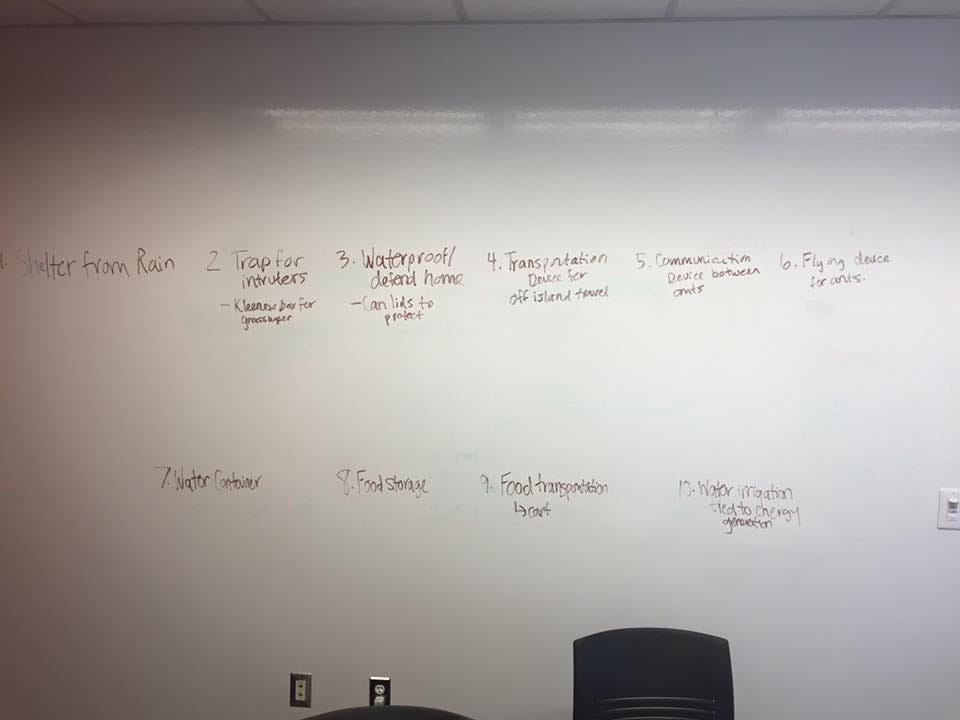 1. Shelter from Rain
2 Trap for
intruders
- Kleenex box for
grasshopper
3. Waterproof/
defend home
- Can lids to
protect
4. Transportation
Device for
off island travel
5. Communication
Device between
ants
6. Flying device
for ants.
7. Water Container
8. Food storage
9. Food transportation
↳ cart
10. Water irrigation
tied to energy
generation